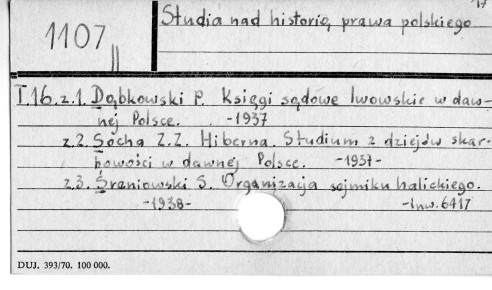 17
1107 || Studia nad historią prawa polskiego
T.16.z.1. Dąbkowski P. Księgi sądowe lwowskie w daw-
nej Polsce. -1937
z.2. Socha Z.Z. Hiberna. Studium z dziejów skar-
bowości w dawnej Polsce. -1937-
z.3. Śreniowski S. Organizacja sejmiku halickiego.
-1938- -Inw.6417
DUJ. 393/70. 100 000.